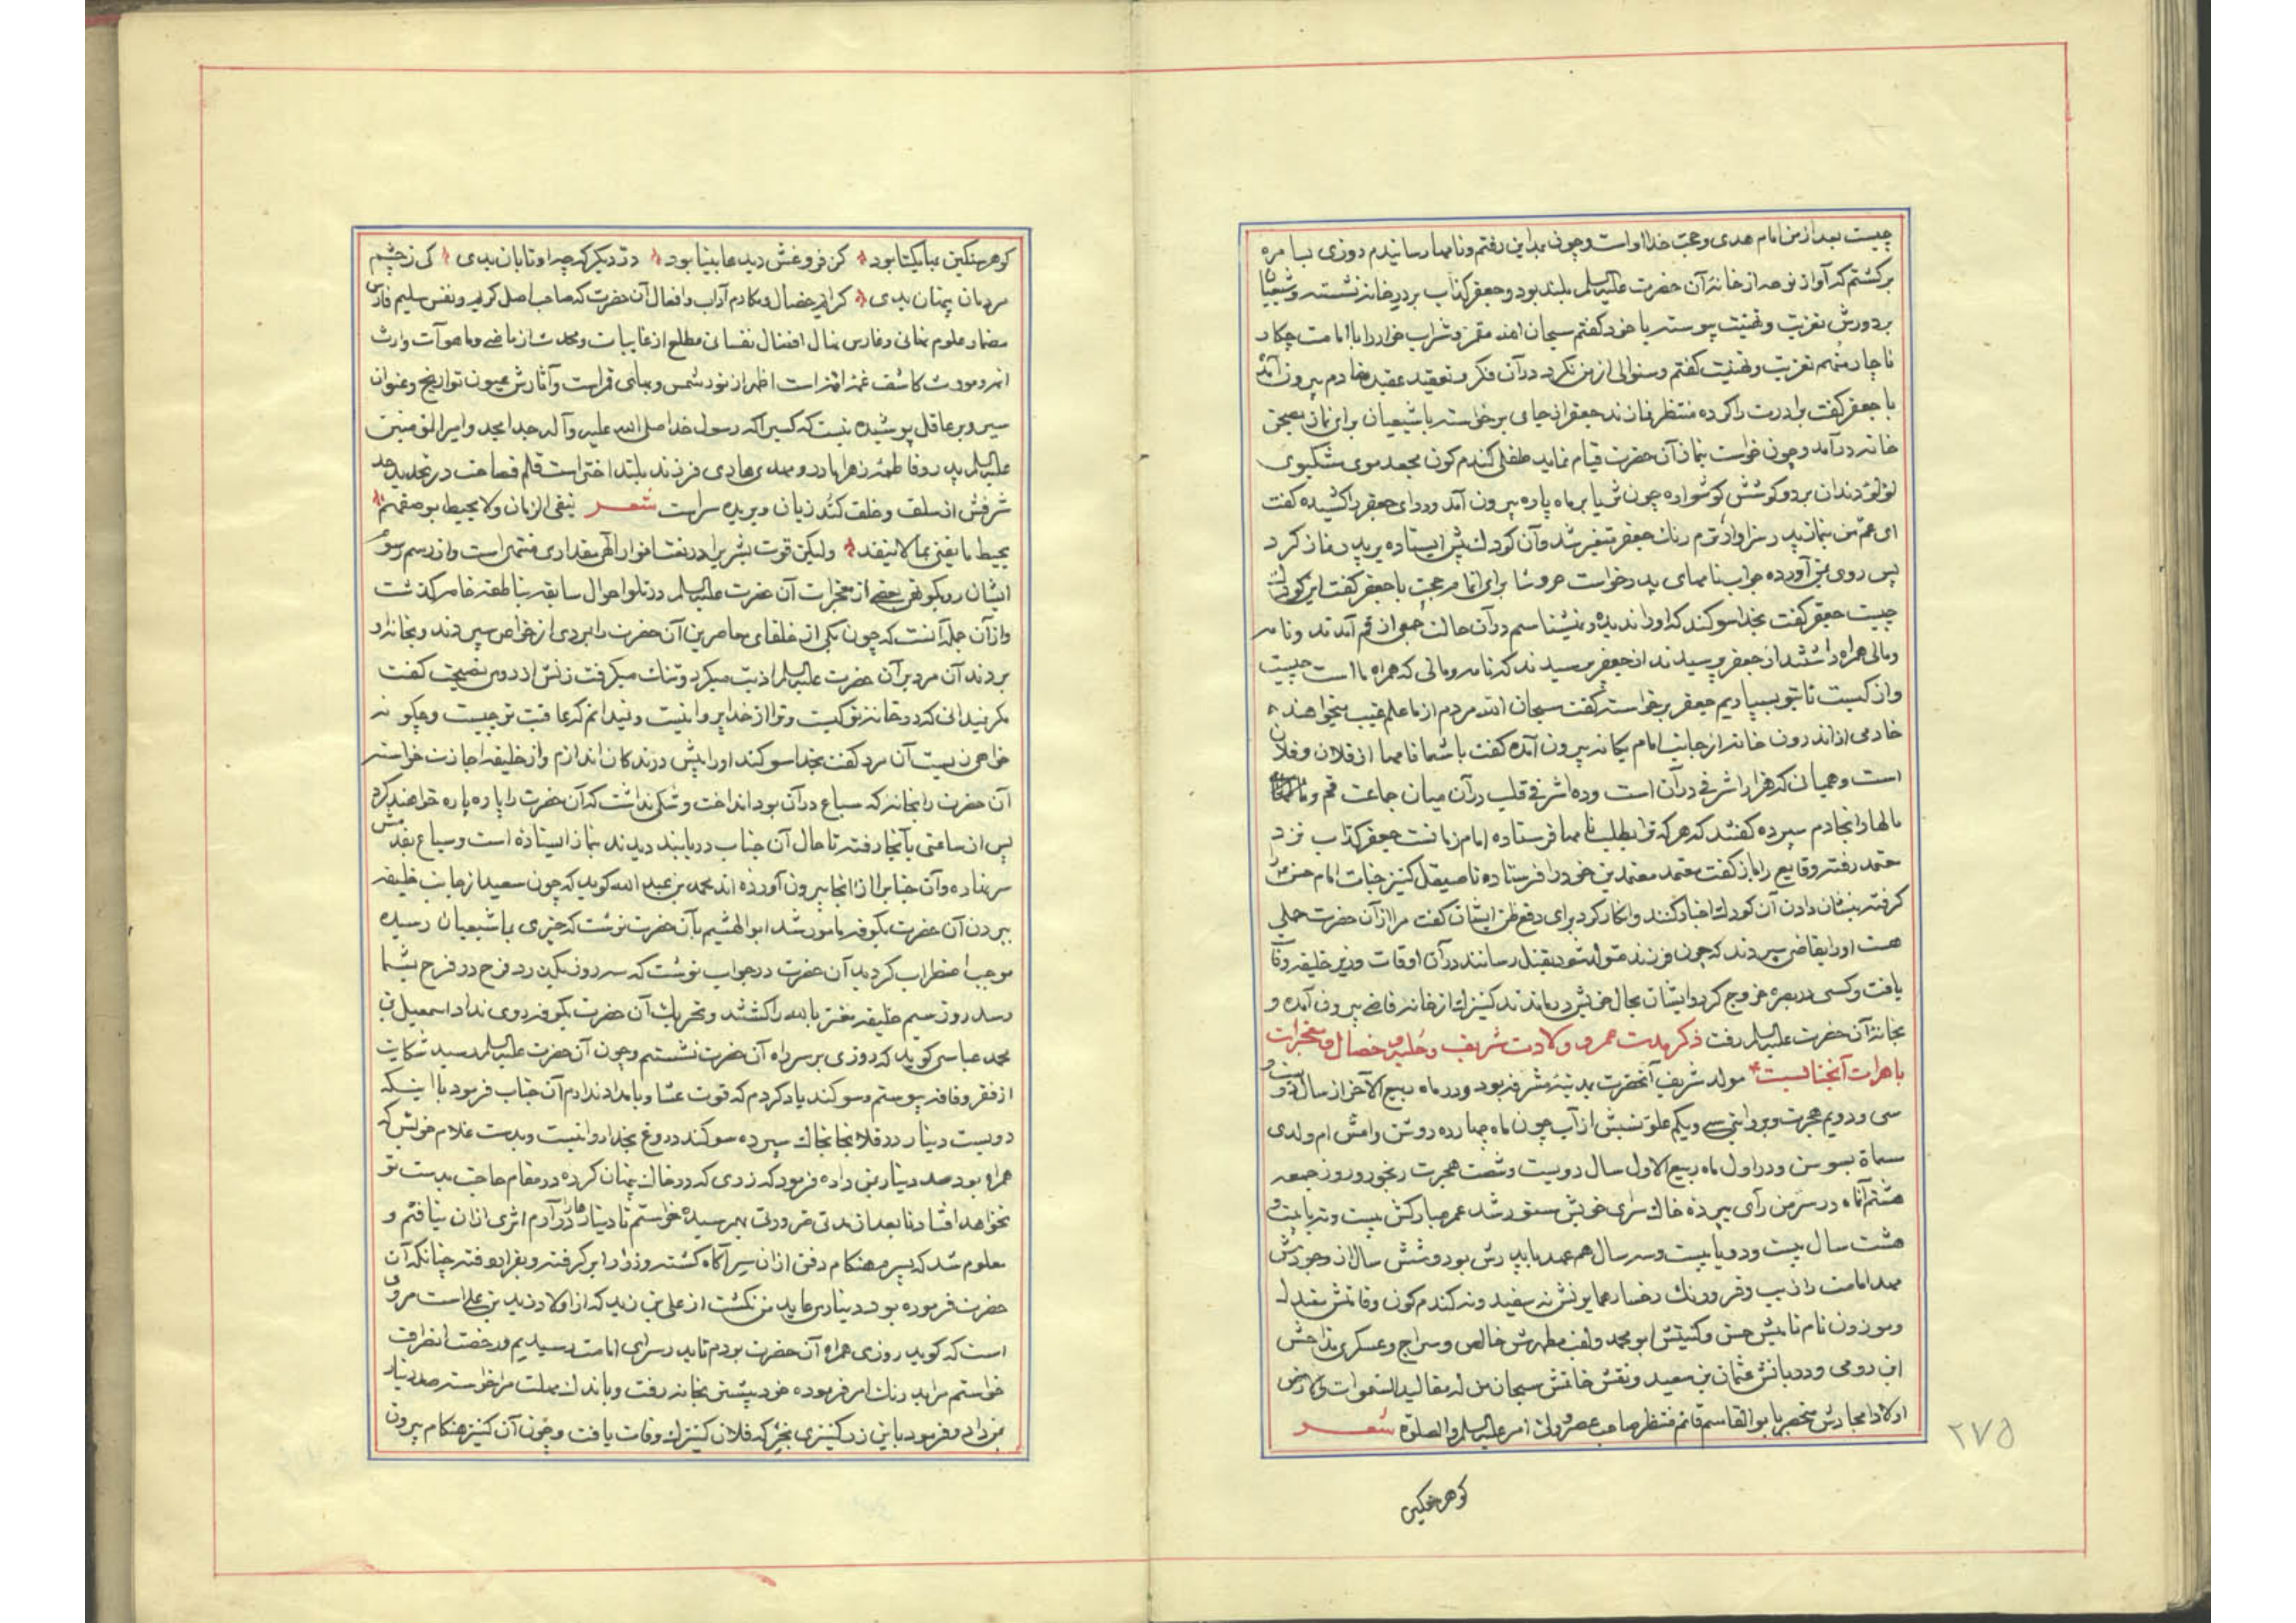 چیست بعد از من امام هدی و حجت خدا او است و چون بمداین رفتم و نامها رسانیدم روزی بسامره
برکشتم که آواز نوحه از خانهٔ آن حضرت علیه السلم بلند بود و جعفر کذاب بر در خانه نشسته و شیعیان
بر دورش تعزیت و تهنیت پیوسته با خود کفتم سبحان الله مقر و شراب خوار را با امامت چکار
ناچار منهم تعزیت و تهنیت کفتم و سئوالی از من نکرد در آن فکر و عقید خادم بیرون آمد
با جعفر کفت برادرت را کرده منتظر نمازند جعفر از جای برخواسته با شیعیان برای نماز بصحن
خانه درآمد و چون خواست بنماز آن حضرت قیام نماید طفلی کندم کون مجعد موی مشکبوی
لؤلؤ دندان بر دو کوشش کوشواره چون ثریا بر ماه پاره بیرون آمد و ردای جعفر را کشیده کفت
ای عم من بنماز پدر سزاوارترم رنك جعفر متغیر شد و آن کودك پیش ایستاده بر پدر نماز کرد
پس روی بمن آورده جواب نامهای پدر خواست بامن جعفر کفت این کودك
چیست جعفر کفت بخدا سوکند که او را ندیده و نمیشناسم در آن حالت جمعی از قم آمدند و نامه
و مالی همراه داشتند از جعفر پرسیدند از جعفر پرسیدند که نامه و مالی که همراه ما است چیست
و از کیست تا بتو بسپاریم جعفر برخواسته کفت سبحان الله مردم از ما علم غیب میخواهند
خادمی از اندرون خانه از جانب امام یکانه بیرون آمده کفت با شما نامها از فلان و فلان
است و همیان که هزار اشرفی در آن است و ده اشرفی قلب در آن میان جماعت قم و نامها
مالها را بخادم سپرده کفتند که هر که ترا بطلب نامها فرستاده امام زمانست جعفر کذاب نزد
معتمد رفته وقایع را باز کفت معتمد معتمدین خود را فرستاده تا صیقل کنیز جناب امام حسن را
کرفته بنشان دادن آن کودك اجبار کنند و انکار کرد برای دفع ظن ایشان کفت مرا از آن حضرت حملی
هست او را بقاضی سپردند که چون فرزند متولد شود بقتل رسانند در آن اوقات وزیر خلیفه وفات
یافت و کسی در بصره خروج کرد و ایشان بحال خویش درماندند کنیزك از خانه قاضی بیرون آمده و
بخانهٔ آن حضرت علیه السلم رفت ذکر مدت عمر و ولادت شریف و حلیه و خصال و معجزات
باهرات آنجنابست مولد شریف آنحضرت بمدینهٔ مشرفه بود و در ماه ربیع الآخر از سال دویست و
سی و دویم هجرت و بروایتی سی و یکم علو نسبش از آب چون ماه چارده روشن و امش ام ولدی
مسماة بسوسن و در اول ماه ربیع الاول سال دویست و شصت هجرت رنجور و روز جمعه
هشتم آنماه در سر من رأی بپرده خاك سرای خویش مستور شد عمر مبارکش بیست و نه یا بیست و
هشت سال بیست و دو یا بیست و سه سال هم عهد با پدرش بود و شش سال از وجودش
مهد امامت را زیب و فر و رنك رخسار همایونش نه سفید و نه کندم کون و قامتش معتدل
و موزون نام نامیش حسن و کنیتش ابو محمد و لقب مطهرش خالص و سراج و عسکری مداحش
ابن رومی و دربانش عثمان بن سعید و نقش خاتمش سبحان من له مقالید السموات والارض
اولاد امجادش منحصر بابوالقاسم قائم منتظر صاحب عصر ولی امر علیه السلم والصلوة شعر
٢٧٥
کوهر سنکین
کوهر سنکین بها یکتا بود کز فروغش دیدها بینا بود دزد دیکر که چه او تابان بدی کی ز چشم
مردمان پنهان بدی کرایم خصال و مکارم آداب و افعال آن حضرت که صاحب اصل کریم و نفس سلیم فارس
مضمار علوم نهانی و غارس نهال افضال نفسانی مطلع از غایبات و محدث از ماضی و ما هوآت وارث
کاشف غمزات اظهر از نور شمس و قمر است و آثارش عیون تواریخ و عنوان
سیر و بر عاقل پوشیده نیست که کسیرا که رسول خدا صلی الله علیه وآله جد امجد و امیرالمؤمنین
علیه السلم پدر و فاطمهٔ زهرا مادر و مهدی هادی فرزند بلند اختر است قلم فصاحت در تحدید حد
شرفش از سلف و خلف کند زبان و بریده سر است شعر یفنی الزمان ولا یحیط بوصفهم
یحیط ما یفنی بما لا ینفد ولیکن قوت بشریرا در نعت انوار الهی مقداری منتهی است و از رسم رسوم
ایشان روبکو نعی بعضی از معجزات آن حضرت علیه السلم در تلو احوال سابقه بناطقه خامه کذشت
و از آن جمله آنست که چون یکی از خلفای معاصرین آن حضرت را بمردی از خواص سپردند و بخانه او
بردند آن مرد بر آن حضرت علیه السلم اذیت میکرد و تنك میکرفت زنش از در وی نصیحت کفت
مکر نمیدانی که در خانه تو کیست و ترا از خدا پروا نیست و نمیدانم که عاقبت تو چیست و چکونه
خواهی زیست آن مرد کفت بخدا سوکند او را پیش درندکان اندازم و از خلیفه اجازت خواسته
آن حضرت را بخانه که سباع در آن بود انداخت و شکی نداشت که آن حضرت را پاره پاره خواهند کرد
پس از ساعتی بآنجا رفته تا حال آن جناب دریابند دیدند بنماز ایستاده است و سباع بقدمش
سر نهاده و آن جنابرا از آنجا بیرون آورده اند محمد بن عبد الله کوید که چون سعید از جانب خلیفه
ببردن آن حضرت بکوفه مأمور شد ابوالهشیم بآن حضرت نوشت که خبری بما شیعیان رسیده
موجب اضطراب کردید آن حضرت در جواب نوشت که سه روز دیکر فرح در فرح بشما
رسد روز سیم خلیفه معتز بالله را کشتند و تحریك آن حضرت بکوفه روی نداد اسمعیل بن
محمد عباسی کوید که روزی بر سر راه آن حضرت نشستم و چون آن حضرت علیه السلم رسید شکایت
از فقر و فاقه پیوستم و سوکند یاد کردم که قوت عشا و بامداد ندارم آن جناب فرمود با اینکه
دویست دینار در فلانجا بخاك سپرده سوکند دروغ بخدا روا نیست و بدست غلام خویش که
همراه بود صد دینار بمن داده فرمود که زری که در خاك پنهان کرده در مقام حاجت بدست تو
نخواهد افتاد تا بعد از مدتی ضرورتی بهم رسیده خواستم تا دینارها را درآرم اثری از آن نیافتم و
معلوم شد که پسرم هنکام دفن از آن سر آکاه کشته و زر را برکرفته و بفرار رفته چنانکه آن
حضرت فرموده بود دیناری عاید من نکشت از علی بن زید که از اولاد زید بن علی است مروی
است که کوید روزی همراه آن حضرت بودم تا بدر سرای امامت رسیدیم و رخصت انصراف
خواستم مرا بدرنك امر فرموده خود پیشتر بخانه رفت و باندك مهلت مرا خواسته صد دینار
بمن داد و فرمود باین زر کنیزی بخر که فلان کنیزك وفات یافت و چون آن کنیز هنکام بیرون